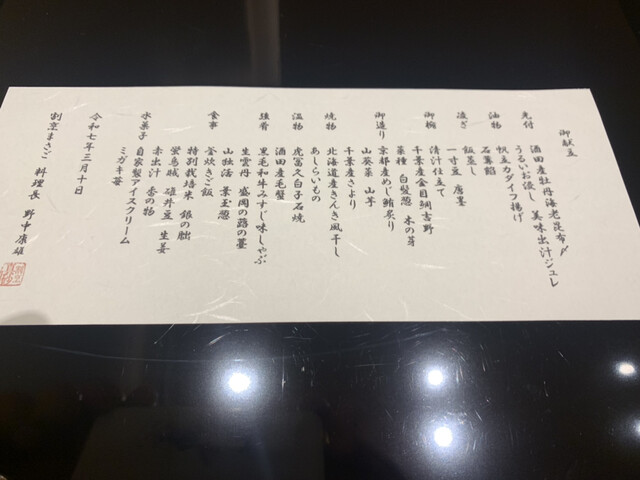 御献立
先付 酒田産牡丹海老昆布〆
うるいお浸し 美味出汁ジュレ
油物 帆立カダイフ揚げ
石蓴餡
凌ぎ 飯蒸し
一寸豆 唐墨
御椀 清汁仕立て
千葉産金目鯛吉野
菜種 白髪葱 木の芽
御造り 京都産めじ鮪炙り
山葵菜 山芋
千葉産さより
あしらいもの
焼物 北海道産きんき風干し
温物 虎富久白子石焼
酒田産毛蟹
強肴 黒毛和牛みすじ味しゃぶ
生雲丹 盛岡の蕗の薹
山独活 葉玉葱
食事 釜炊きご飯
特別栽培米 銀の朏
蛍烏賊 碓井豆 生姜
赤出汁 香の物
水菓子 自家製アイスクリーム
ミガキ苺
令和七年三月十日
割烹まさご 料理長 野中康雄